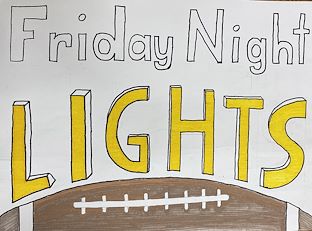 Friday Night
LIGHTS